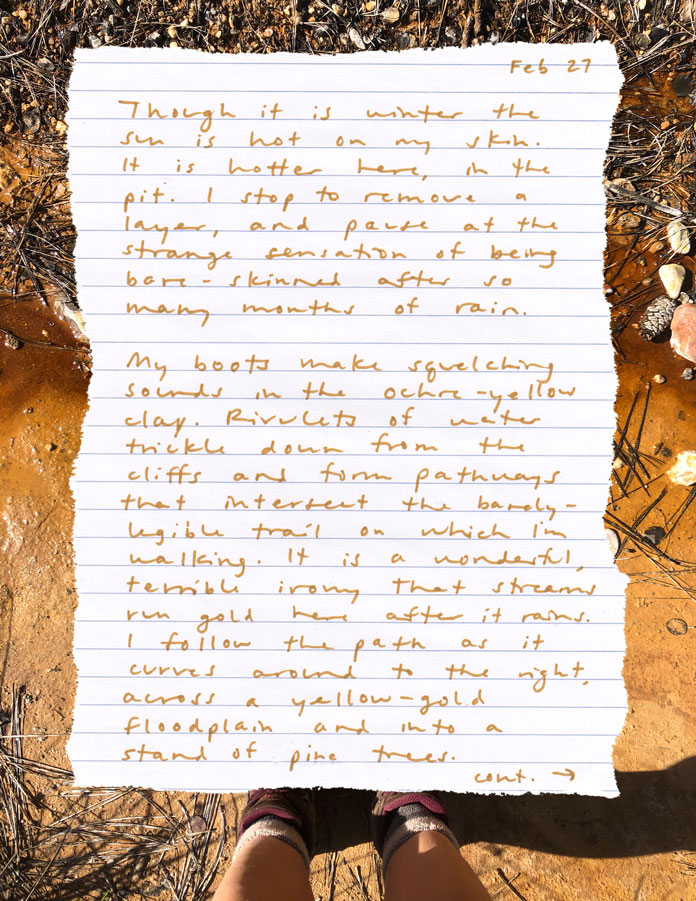 Feb 27
Though it is winter the
sun is hot on my skin.
It is hotter here, in the
pit. I stop to remove a
layer, and pause at the
strange sensation of being
bare-skinned after so
many months of rain.
My boots make squelching
sounds in the ochre-yellow
clay. Rivulets of water
trickle down from the
cliffs and form pathways
that intersect the barely-
legible trail on which I'm
walking. It is a wonderful,
terrible irony that streams
run gold here after it rains.
I follow the path as it
curves around to the right,
across a yellow-gold
floodplain and into a
stand of pine trees.
cont. →